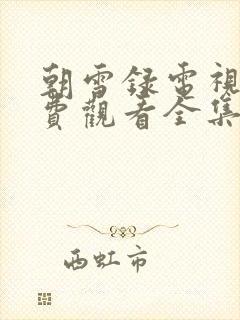 朝雪録電視
費觀看全集
西虹市